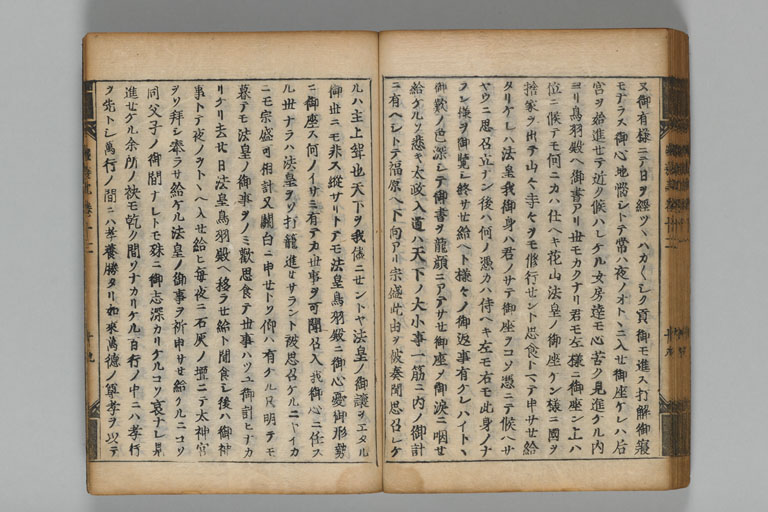 又御有様ニテ日ヲ經ツヽハカ〳〵シク貢御モ進ス打解御寢
モナラス御心地惱シトテ常ハ夜ノオトヽニ入セ御座ケレハ后
宮ヲ始進セテ近ク候ハレケル女房達モ心苦ク見進ケル内
ヨリ鳥羽殿ヘ御書アリ世モカクナリ君モ左様ニ御座ン上ハ
位ニ候テモ何ニカハ仕ヘキ花山法皇ノ御座ケン様ニ國ヲ
捨家ヲ出テ山々寺々ヲモ修行セント思食トマテ申サセ給
タリケレハ法皇我御身ハ君ノサテ御座ヲコソ憑ニテ候ヘサ
ヤウニ思召立ナン後ハ何ノ憑カハ侍ヘキ左モ右モ此身ノナ
ラン様ヲ御覽シ終サセ給ヘト様々ノ御返事有ケレハイトヽ
御歎ノ色深シテ御書ヲ龍顔ニアテサセ御座メ御涙ニ咽セ
給ケルソ悲キ太政入道ハ天下ノ大小事一筋ニ内ノ御計
ニ有ヘシトテ福原ヘ下向アリ宗盛此由ヲ被奏聞思召レケ
ルハ主上聟也天下ヲ我儘ニセントヤ法皇ノ御讓ヲエタル
御世ニモ非ス縦サリトテモ法皇鳥羽殿ニ御心憂御形勢
ニ御座ス何ノイサミ有テカ世事ヲ可聞召入我御心ニ任ス
ル世ナラハ法皇ヲソ打籠進セサラント被思召ケルニヤイカ
ニモ宗盛可相計又關白ニ申セトソ仰ハ有ケル只明テモ
暮テモ法皇ノ御事ヲノミ歎思食テ世事ハツユ御計ヒナカ
リケリ去廿日法皇鳥羽殿ヘ移ラセ給ト聞食シ後ハ御神
事トテ夜ノヲトヽヘ入セ給ヒ毎夜ニ石灰ノ壇ニテ太神宮
ヲソ拜シ奉ラサセ給ケル法皇ノ御事ヲ祈申サセ給ケルニコソ
同父子ノ御間ナレトモ殊ニ御志深カリケルコソ哀ナレ見
進セケル余所ノ袂モ乾ク間ソナカリケル百行ノ中ニハ孝行
ヲ先トシ萬行ノ間ニハ孝養勝タリ如來萬徳ノ尊孝ヲ以テ